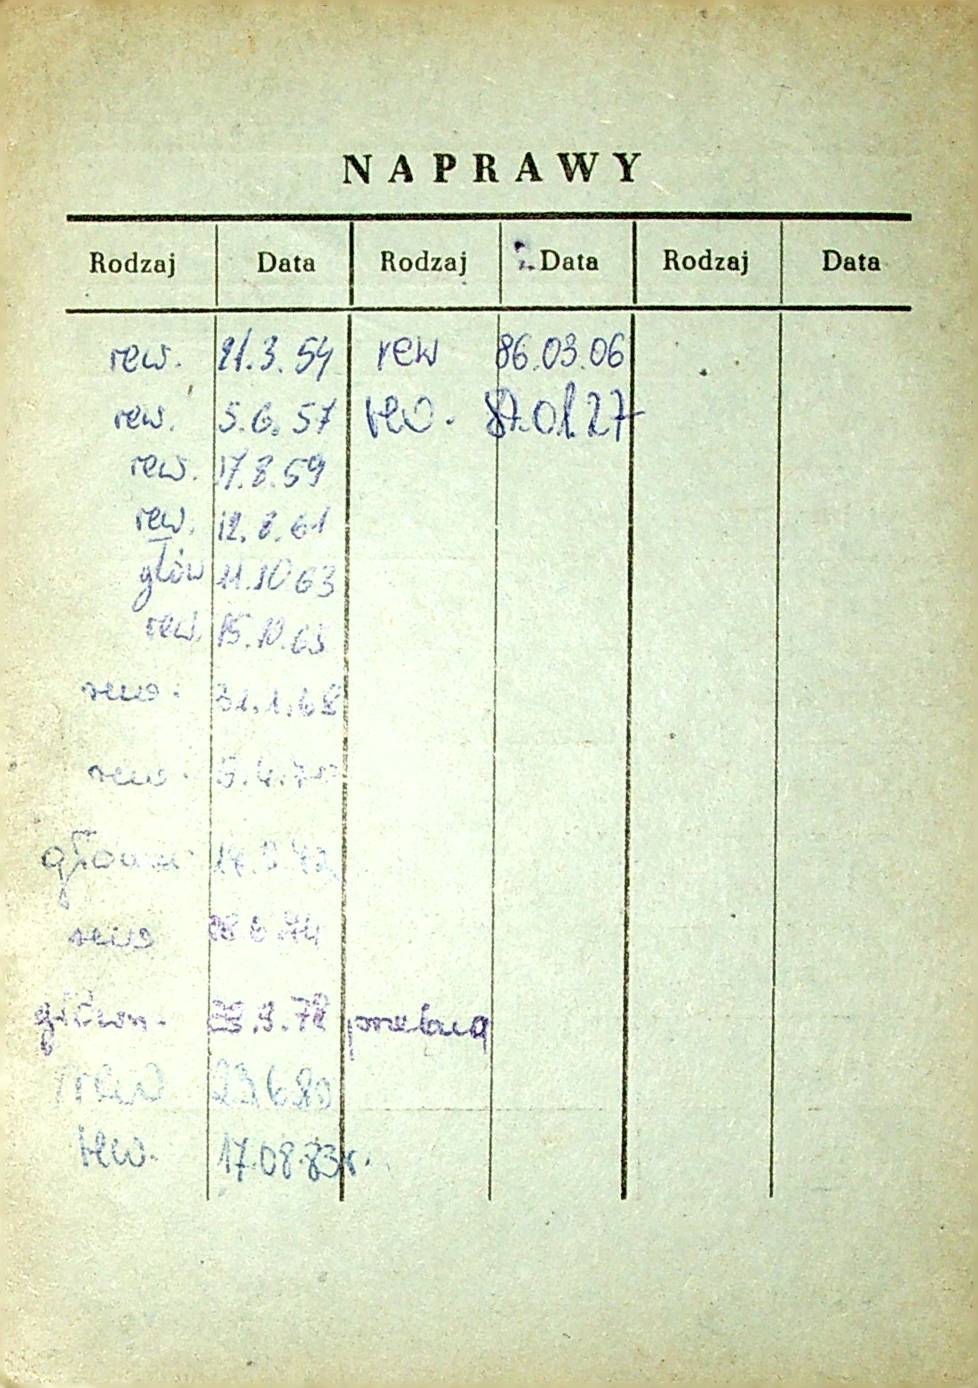 NAPRAWY
Rodzaj Data Rodzaj Data Rodzaj Data
rew. 21.3.54 rew 86.03.06
rew. 5.6.57 rew. 87.01.27
rew. 17.8.59
rew. 12.8.61
głów 11.10 63
rew. 15.10.65
rew. 31.1.68
rew. 5.4.70
główn
rew 6 74
główn. 9.78 przebud
rew 23 6 80
rew. 17.08.83r.